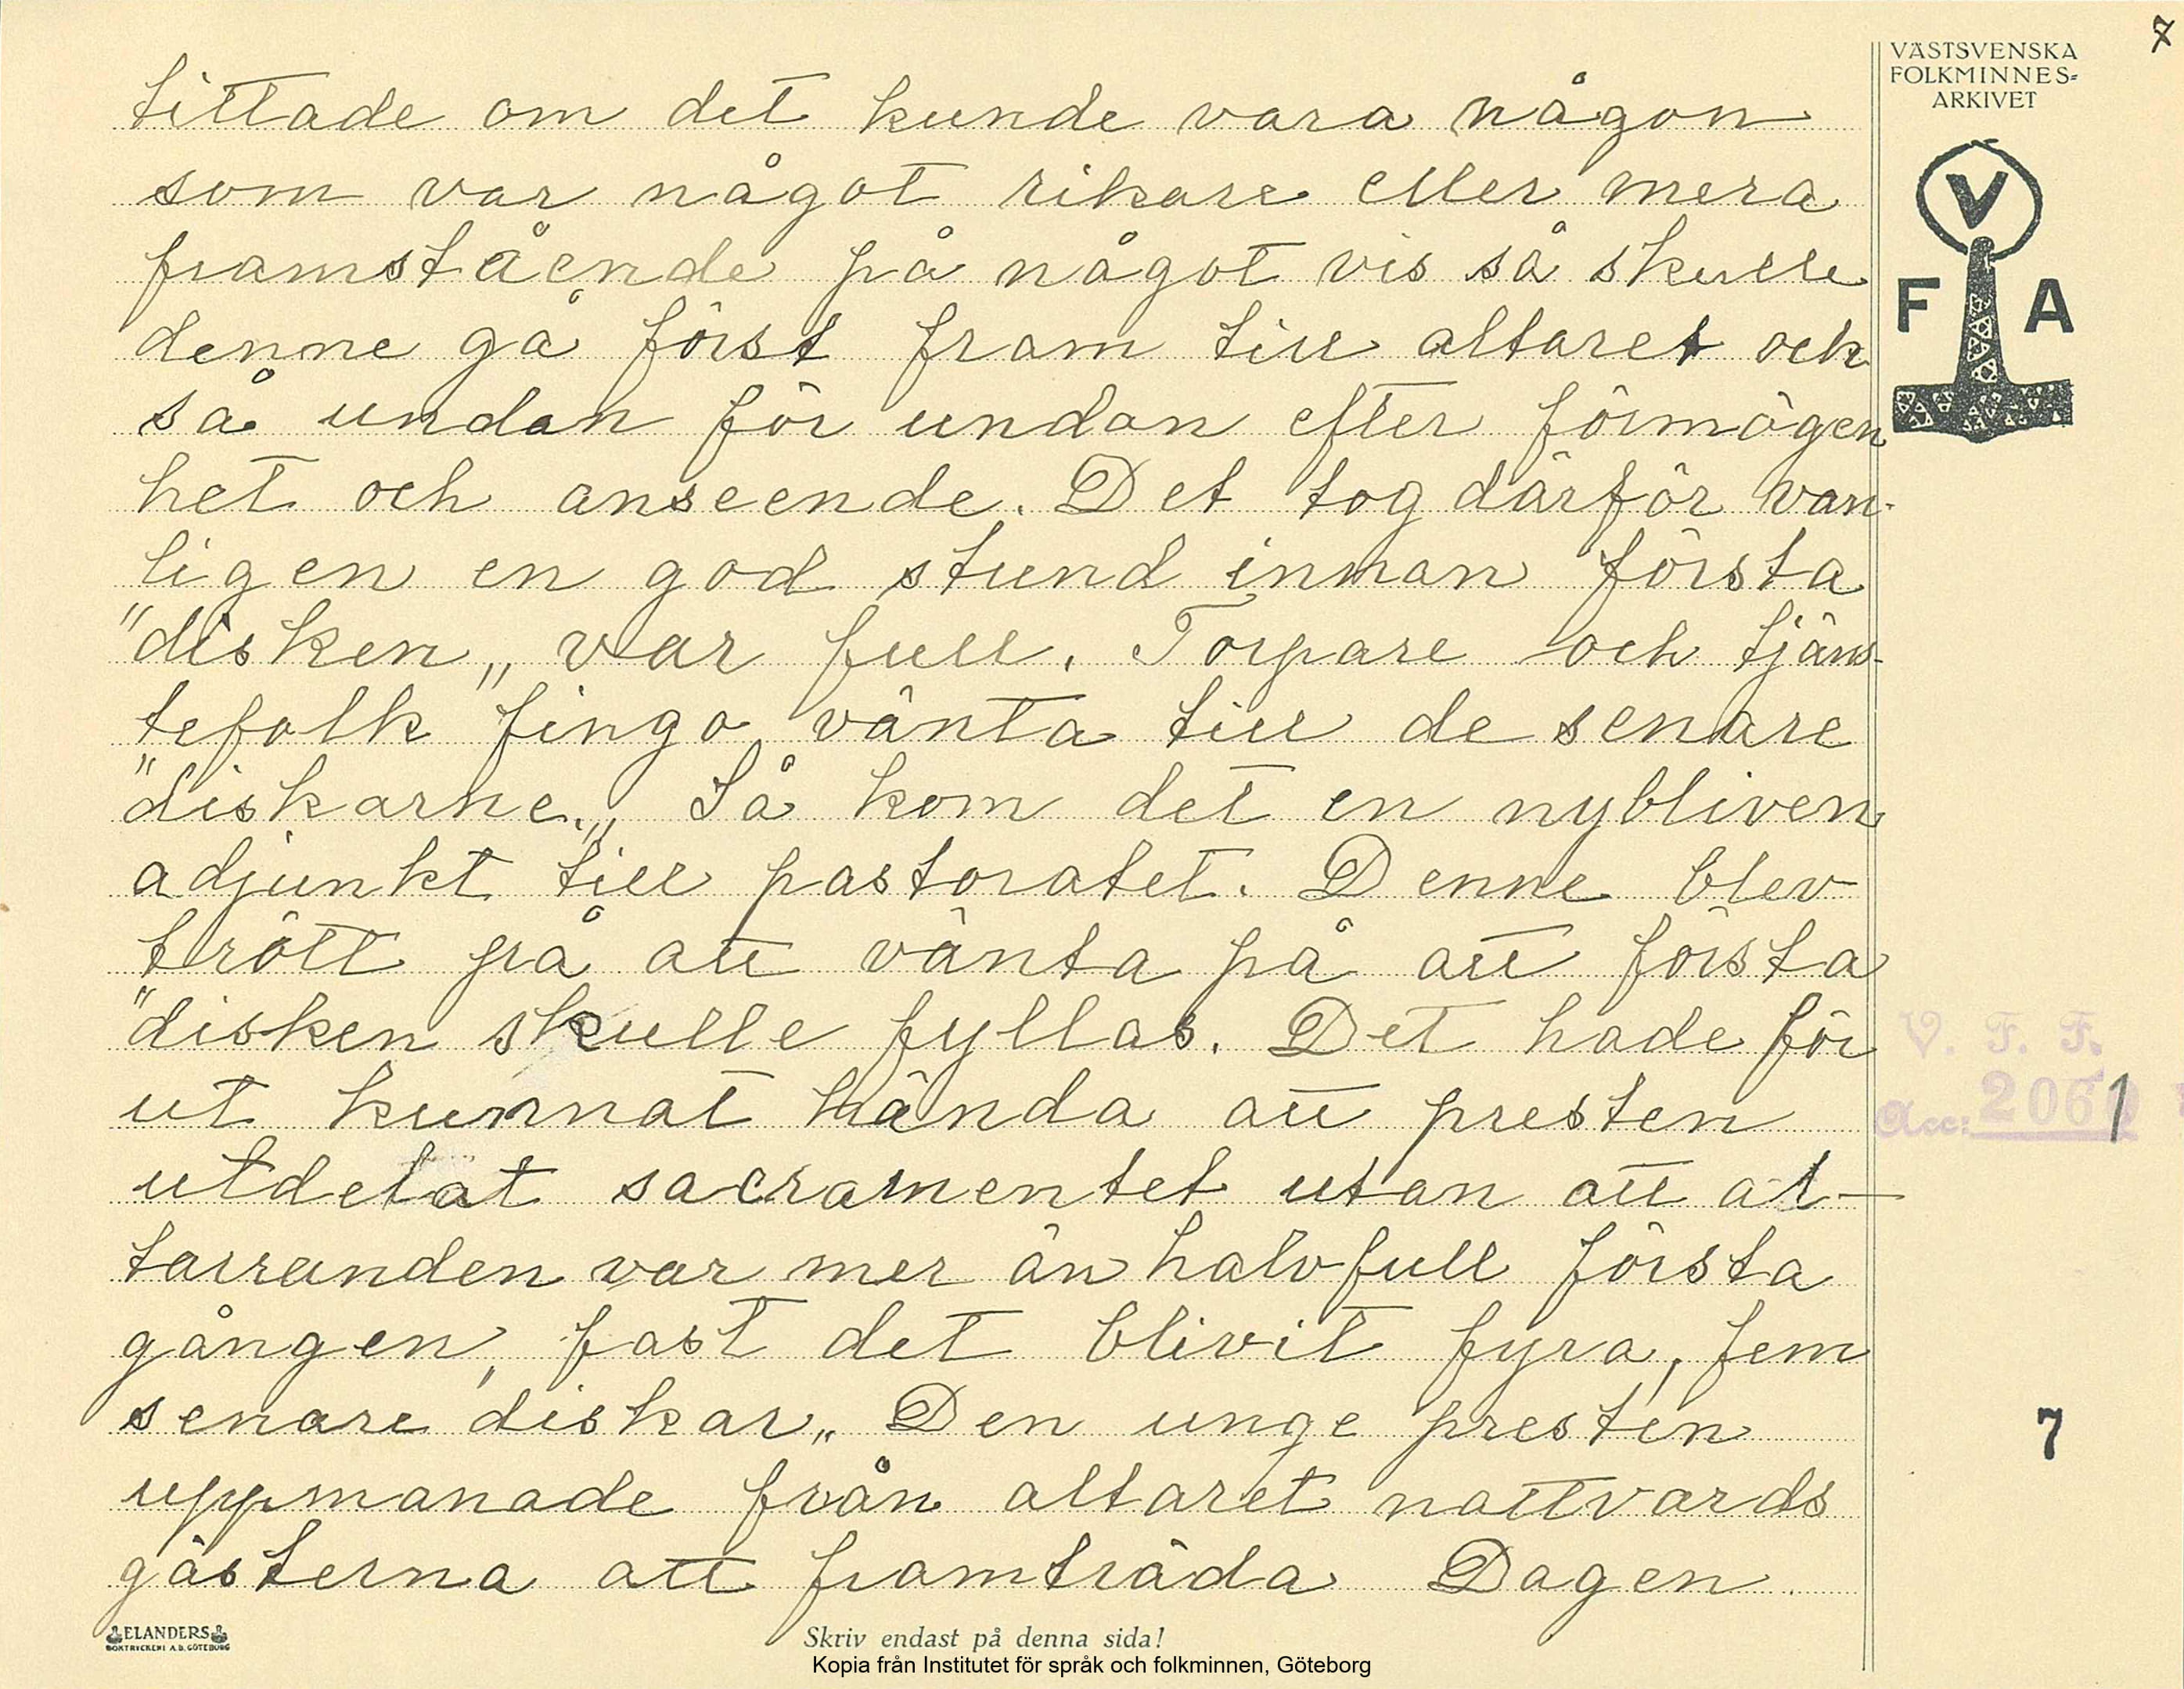 7
VÄSTSVENSKA
FOLKMINNES-
ARKIVET
V
F A
tittade om det kunde vara någon
som var något rikare eller mera
framstående på något vis så skulle
denne gå först fram till altaret och
så undan för undan efter förmögen
het och anseende. Det tog därför van-
ligen en god stund innan första
"disken„ var full. Torpare och tjäns-
tefolk fingo vänta till de senare
"diskarne.„ Så kom det en nybliven
adjunkt till pastoratet. Denne blev
trött på att vänta på att första
"disken skulle fyllas. Det hade för
ut kunnat hända att presten
utdelat sacramentet utan att al-
tarranden var mer än halvfull första
gången, fast det blivit fyra, fem
senare diskar„ Den unge presten
uppmanade från altaret nattvards
gästerna att framträda Dagen
V. F. F.
Acc: 2061
7
ELANDERS
BOKTRYCKERI A.B. GÖTEBORG
Skriv endast på denna sida!
Kopia från Institutet för språk och folkminnen, Göteborg